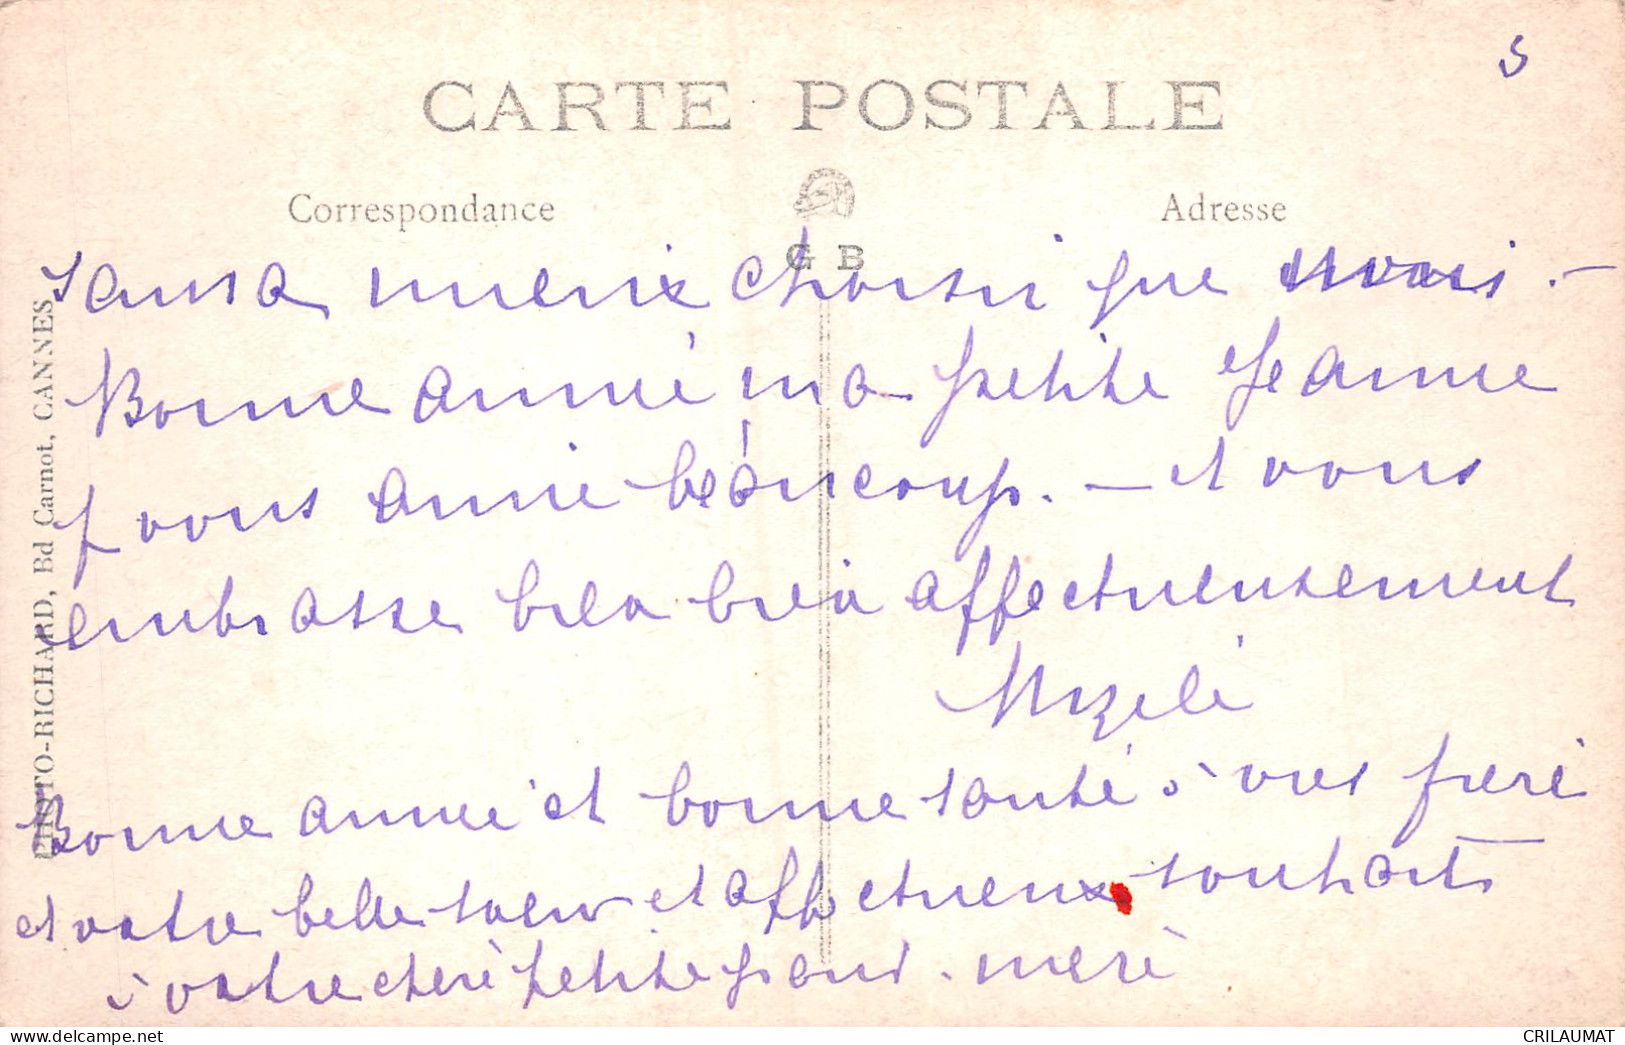 5
CARTE POSTALE
Correspondance
Adresse
G B
PHOTO-RICHARD, Bd Carnot, CANNES
saura mieux choisir que moi. —
Bonne année ma petite Jeanne
je vous aime beaucoup. — et vous
embrasse bien bien affectueusement
Bonne année et bonne santé à votre frère
et votre belle sœur et affectueux souhaits
à votre chère petite grand-mère
CRILAUMAT